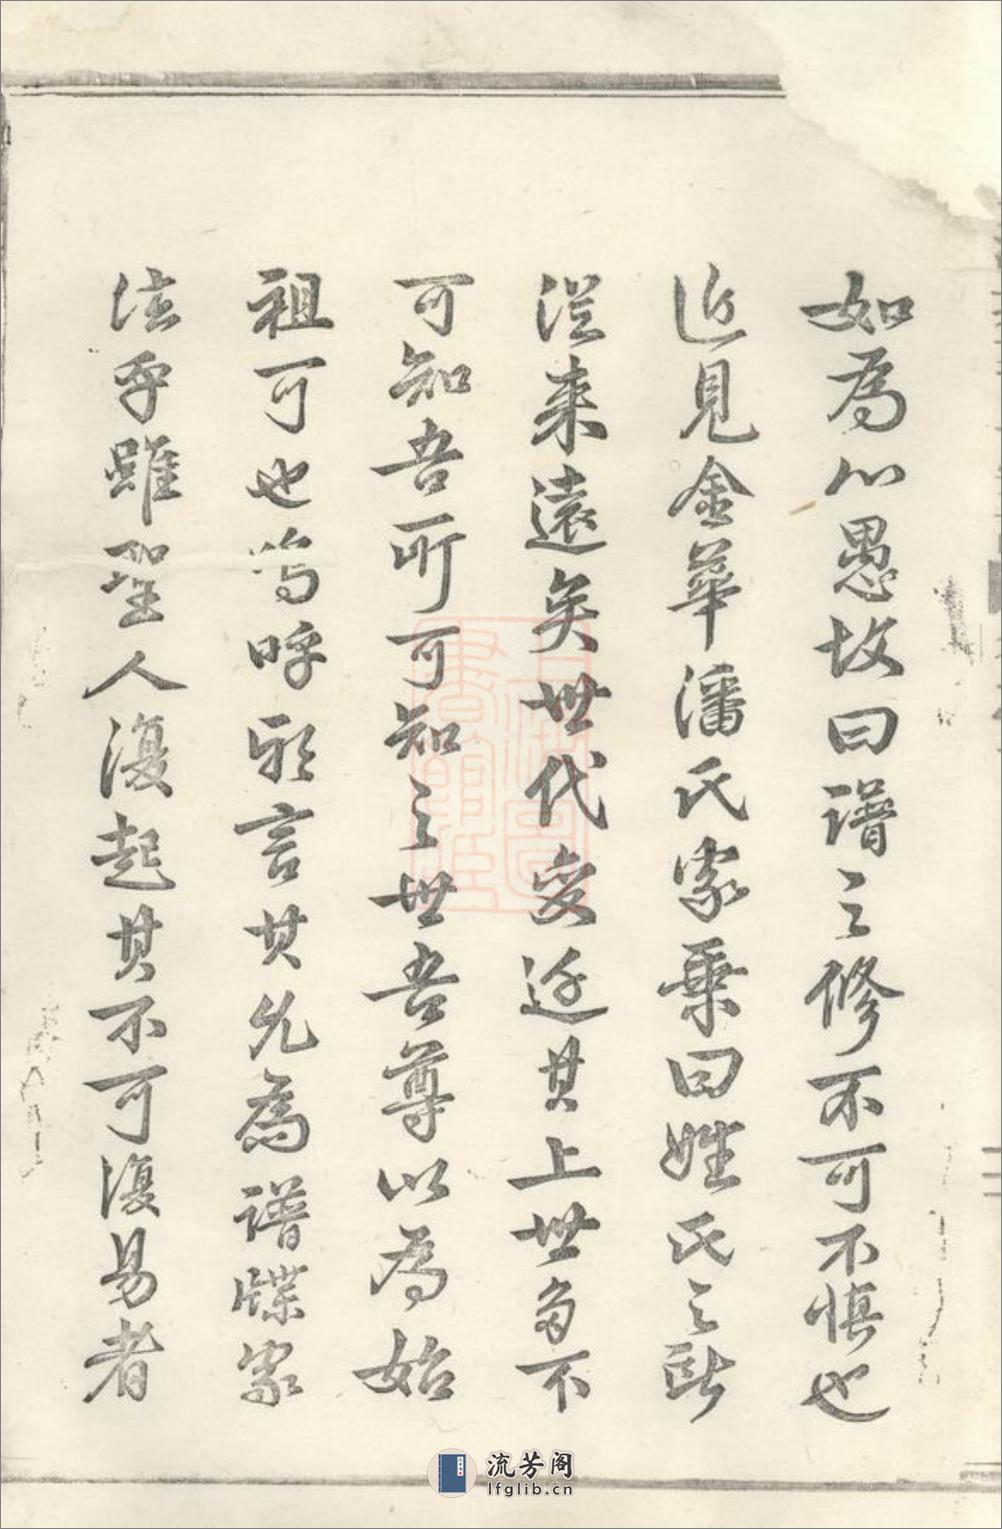 如為心愚故曰譜之修不可不慎也
近見金華潘氏家乗曰姓氏之所
從来遠矣世代变迁其上世多不
可知吾所可知之世吾尊以為始
祖可也嗚呼斯言其允為譜牒家
法乎雖聖人復起其不可復易者
流芳阁
lfglib.cn